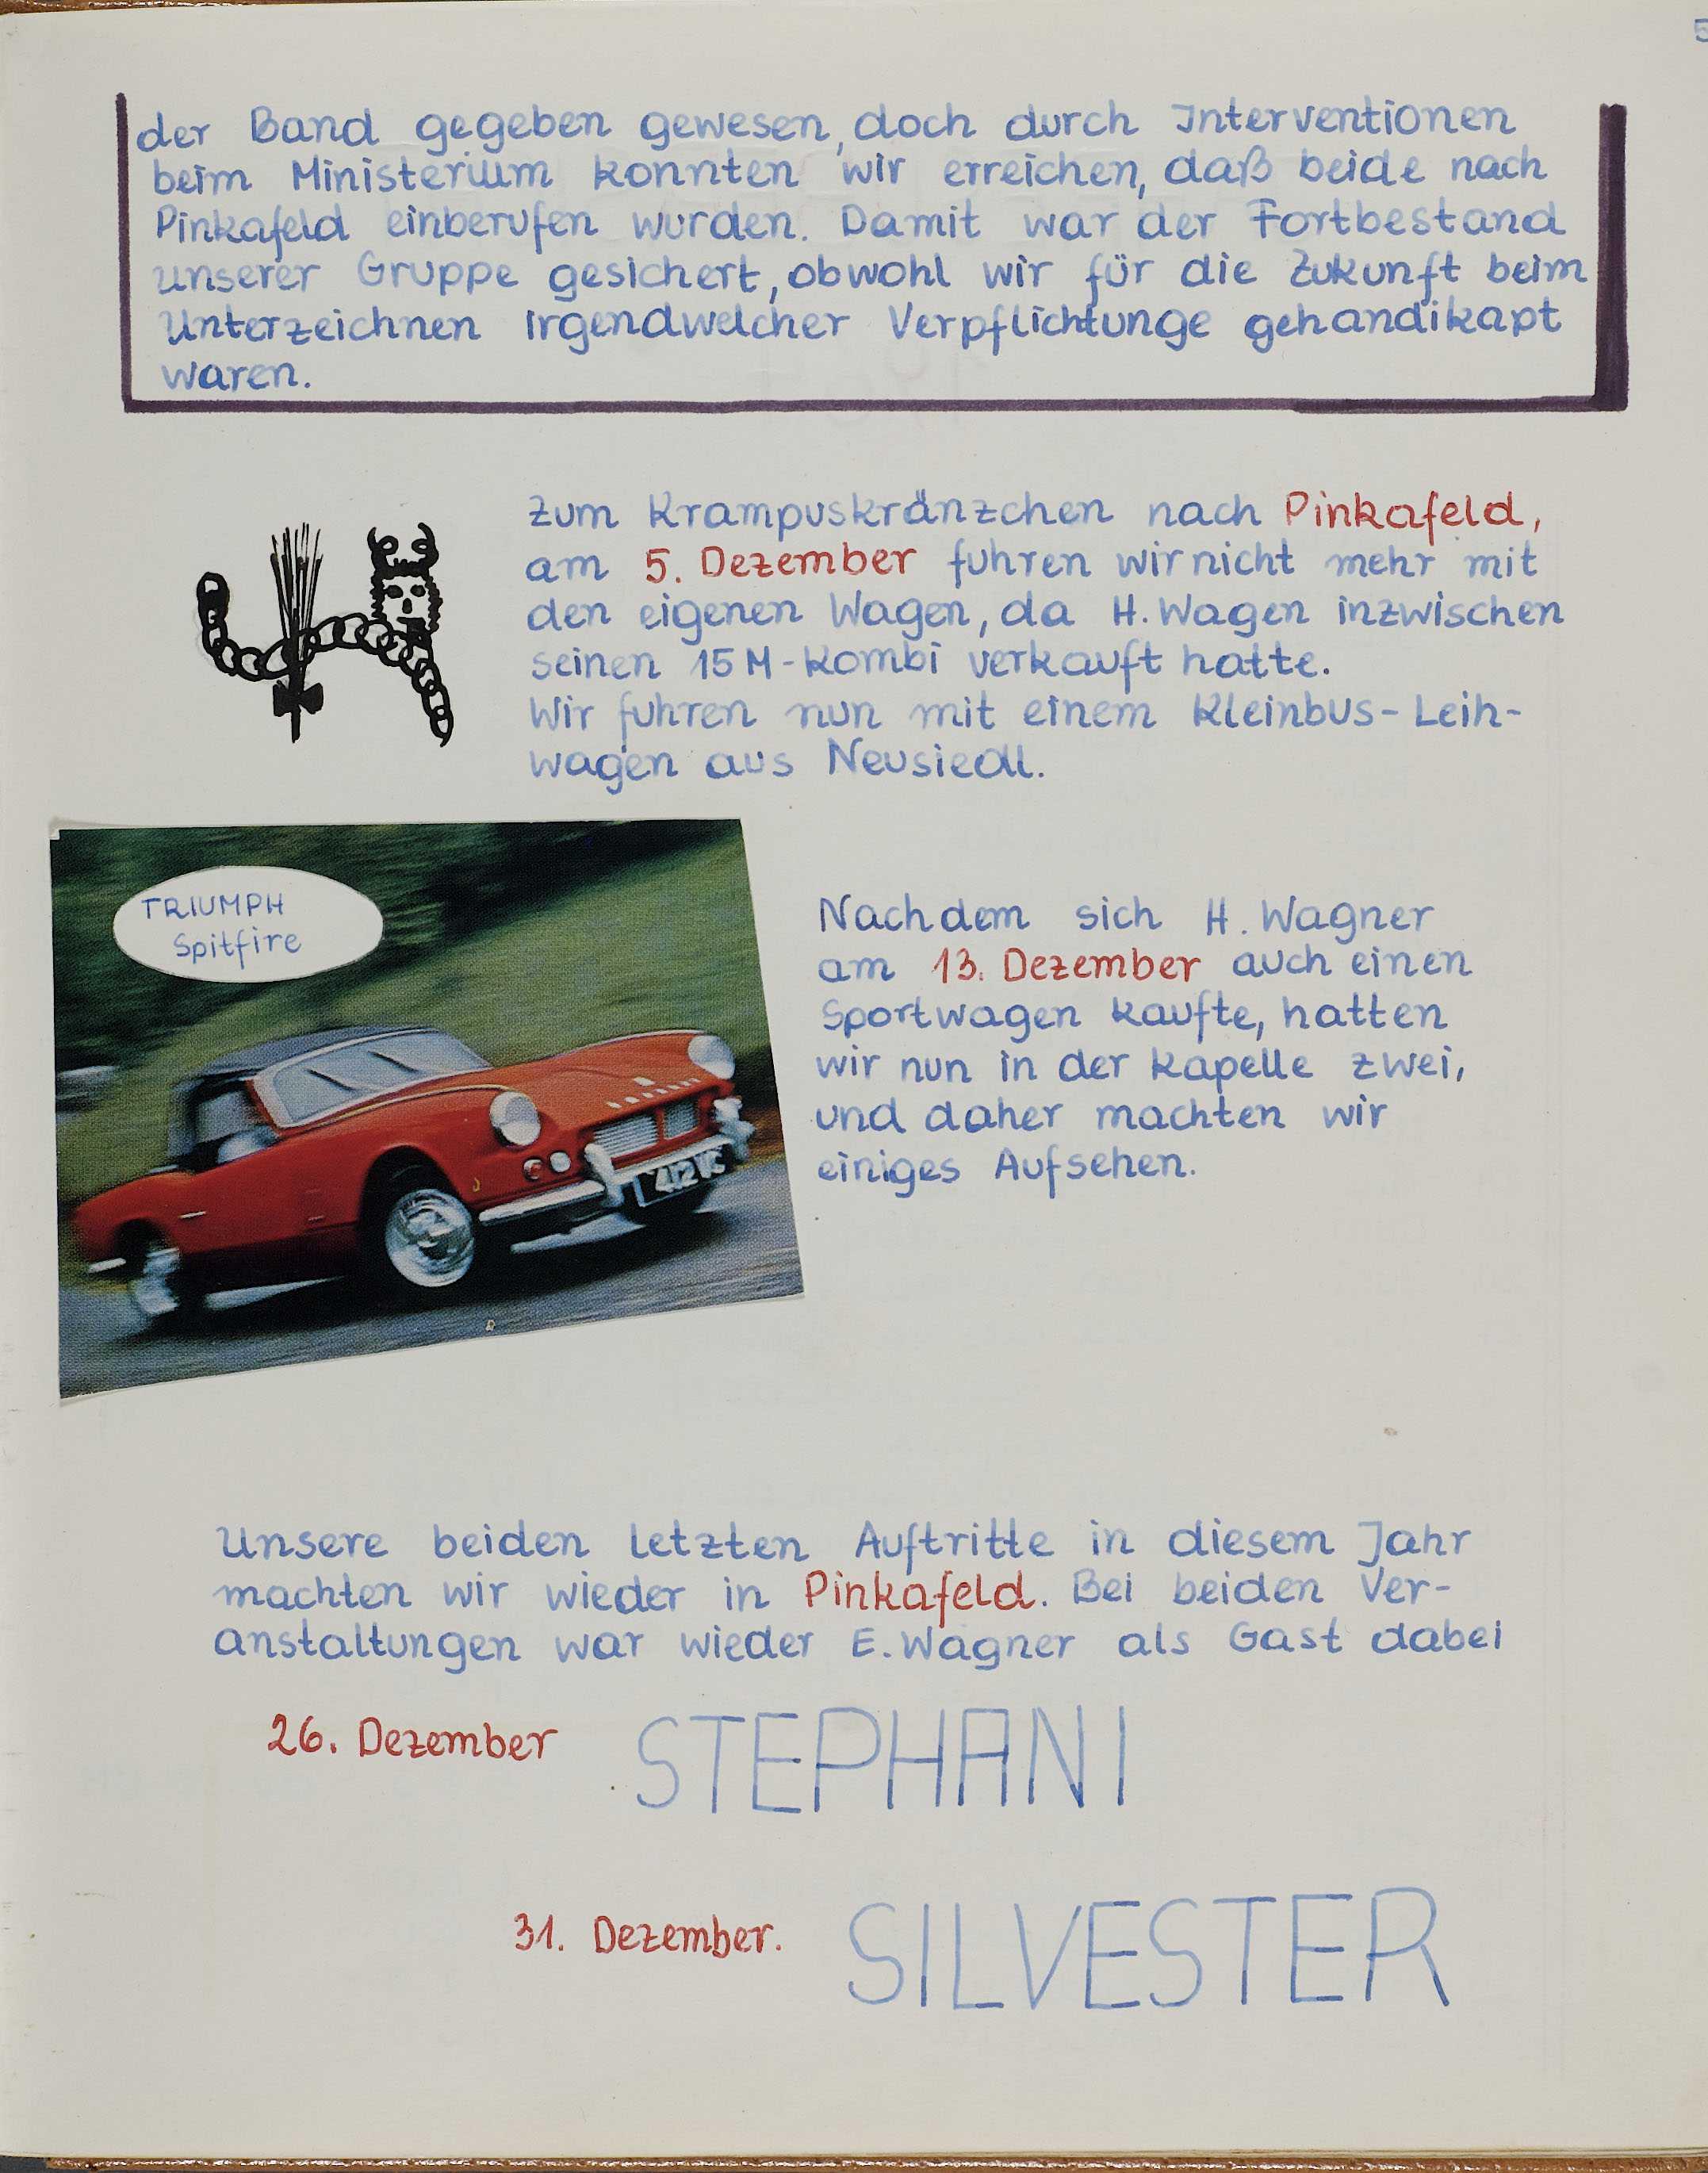 5
der Band gegeben gewesen, doch durch Interventionen
beim Ministerium konnten wir erreichen, daß beide nach
Pinkafeld einberufen wurden. Damit war der Fortbestand
unserer Gruppe gesichert, obwohl wir für die Zukunft beim
Unterzeichnen irgendwelcher Verpflichtunge gehandikapt
waren.
Zum Krampuskränzchen nach Pinkafeld,
am 5. Dezember fuhren wir nicht mehr mit
den eigenen Wagen, da H. Wagen inzwischen
seinen 15M-Kombi verkauft hatte.
Wir fuhren nun mit einem Kleinbus-Leih-
wagen aus Neusiedl.
TRIUMPH
Spitfire
Nachdem sich H. Wagner
am 13. Dezember auch einen
Sportwagen kaufte, hatten
wir nun in der Kapelle zwei,
und daher machten wir
einiges Aufsehen.
412 VC
Unsere beiden letzten Auftritte in diesem Jahr
machten wir wieder in Pinkafeld. Bei beiden Ver-
anstaltungen war wieder E. Wagner als Gast dabei
26. Dezember STEPHANI
31. Dezember. SILVESTER